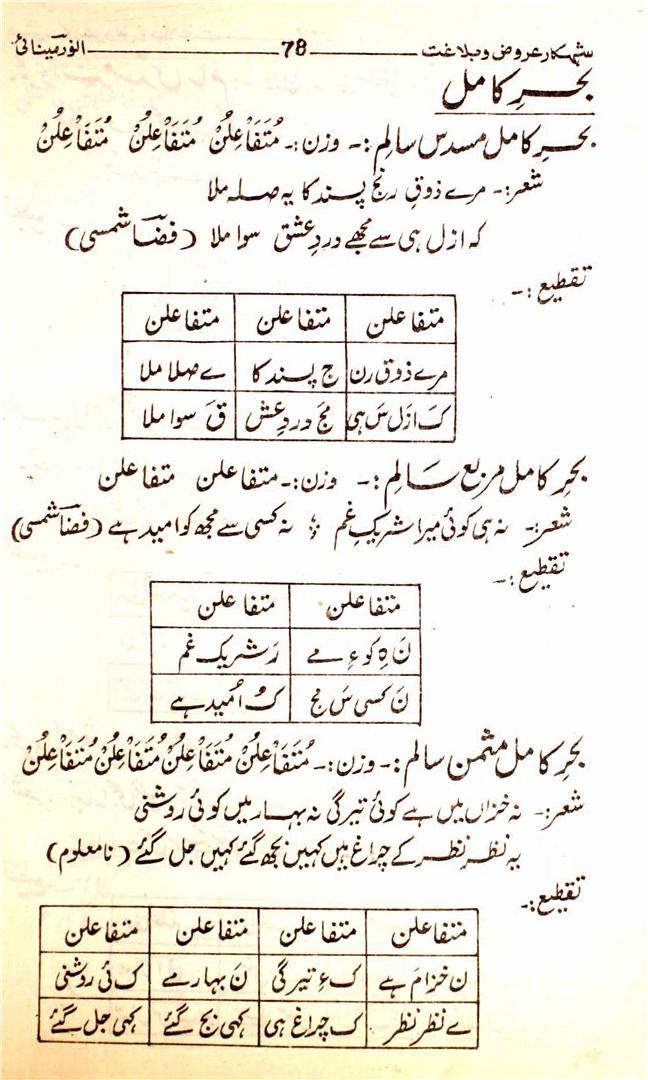 شہکار عروض و بلاغت 78 انور مینائی
بحرِ کامل
بحرِ کامل مسدس سالِم :- وزن:- مُتَفَاعِلُنْ مُتَفَاعِلُنْ مُتَفَاعِلُنْ
شعر:- مرے ذوقِ رنج پسند کا یہ صلہ ملا
کہ ازل ہی سے مجھے دردِ عشق سوا ملا (فضا شمسی)
تقطیع :-
متفاعلن متفاعلن متفاعلن
مرے ذوق رن ج پسند کا ے صلا ملا
کَ ازَل سَ ہی مجَ دردِ عش قَ سوا ملا
بحرِ کامل مربع سَالِم :- وزن:- متفاعلن متفاعلن
شعر:- نہ ہی کوئی میرا شریکِ غم ؛ نہ کسی سے مجھ کو امید ہے (فضا شمسی)
تقطیع :-
متفاعلن متفاعلن
نَ ہِ کو ءِ مے رَ شریک غم
نَ کسی سَ مج کُ اُمید ہے
بحرِ کامل مثمن سالم :- وزن:- مُتَفَاعِلُنْ مُتَفَاعِلُنْ مُتَفَاعِلُنْ مُتَفَاعِلُنْ
شعر:- نہ خزاں میں ہے کوئی تیرگی نہ بہار میں کوئی روشنی
یہ نظر نظر کے چراغ ہیں کہیں بجھ گئے کہیں جل گئے (نامعلوم)
تقطیع :-
متفاعلن متفاعلن متفاعلن متفاعلن
ن خزامَ ہے ک ءِ تیرگی نَ بہار مے ک ئی روشنی
ے نظر نظر ک چراغ ہی کہی بج گئے کہی جل گئے